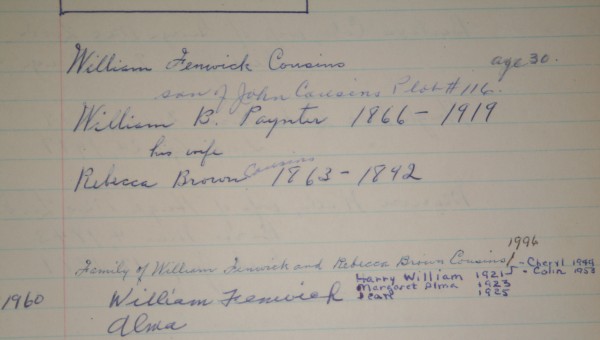 William Fenwick Cousins age 30.
son of John Cousins Plot # 116.
William B. Paynter 1866 - 1919
his wife
Rebecca Brown Cousins 1863 - 1942
1996
Family of William Fenwick and Rebecca Brown Cousins - Cheryl 1949
Harry William 1921 - Colin 1953
1960 William Fenwick Margaret Alma 1923
Jean 1925
Alma